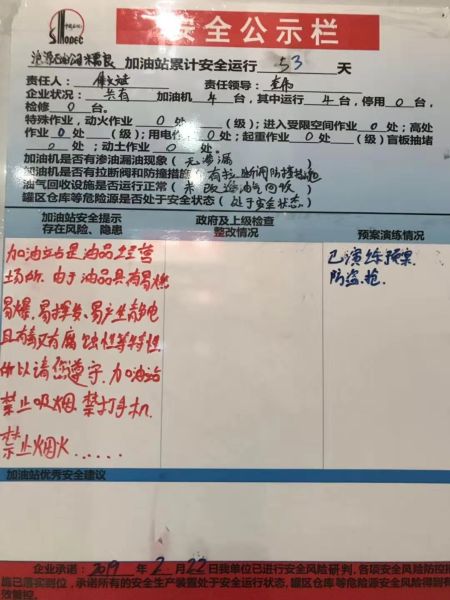 中国石化
SINOPEC
安全公示栏
加油站累计安全运行 53 天
责任人: 责任领导:
企业状况: 共有 加油机 4 台,其中运行 4 台,停用 0 台,
检修 0 台。
特殊作业,动火作业 0 处 (级);进入受限空间作业 0 处;高处
作业 0 处 (级);用电作 0 处;起重作业 0 处;盲板抽堵
0 处;动土作业 0 处。
加油机是否有渗油漏油现象(无渗漏)
加油机是否有拉断阀和防撞措施(有拉断阀防撞措施)
油气回收设施是否运行正常(未改造油气回收)
罐区仓库等危险源是否处于安全状态(处于安全状态)
加油站安全提示
存在风险、隐患
政府及上级检查
整改情况
预案演练情况
加油站是油品经营
场所.由于油品具有易燃
易爆.易挥发.易产生静电
且有毒又有腐蚀性等特性
所以请您遵守.加油站
禁止吸烟.禁打手机.
禁止烟火......
已演练预案.
防盗.抢.
加油站优秀安全建议
企业承诺: 2019 年 2 月 22 日我单位已进行安全风险研判,各项安全风险防控措
施已落实到位,承诺所有的安全生产装置处于安全运行状态,罐区仓库等危险源安全风险得到有
效管控。